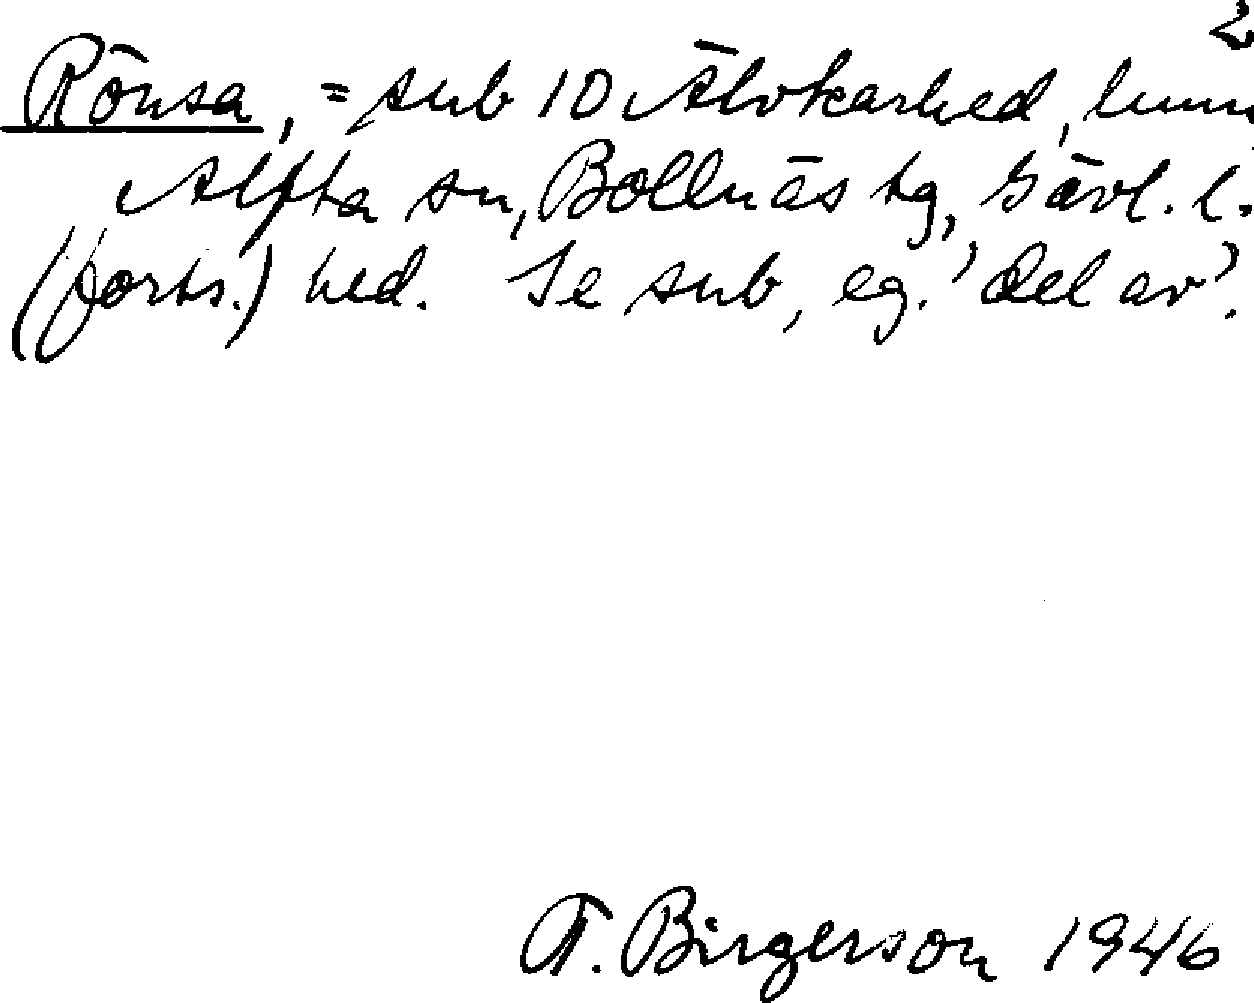 2
Rönsa, = sub 10 Älvkarhed,
Alfta sn, Bollnäs tg, Gävl. l.
(forts.) hed. Se sub, eg. 'del av'.
T. Birgerson 1946